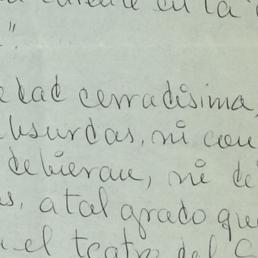 en la
".
edad cerradísima,
absurdas, ni con
debieran, ni de
s, a tal grado que
el teatro del